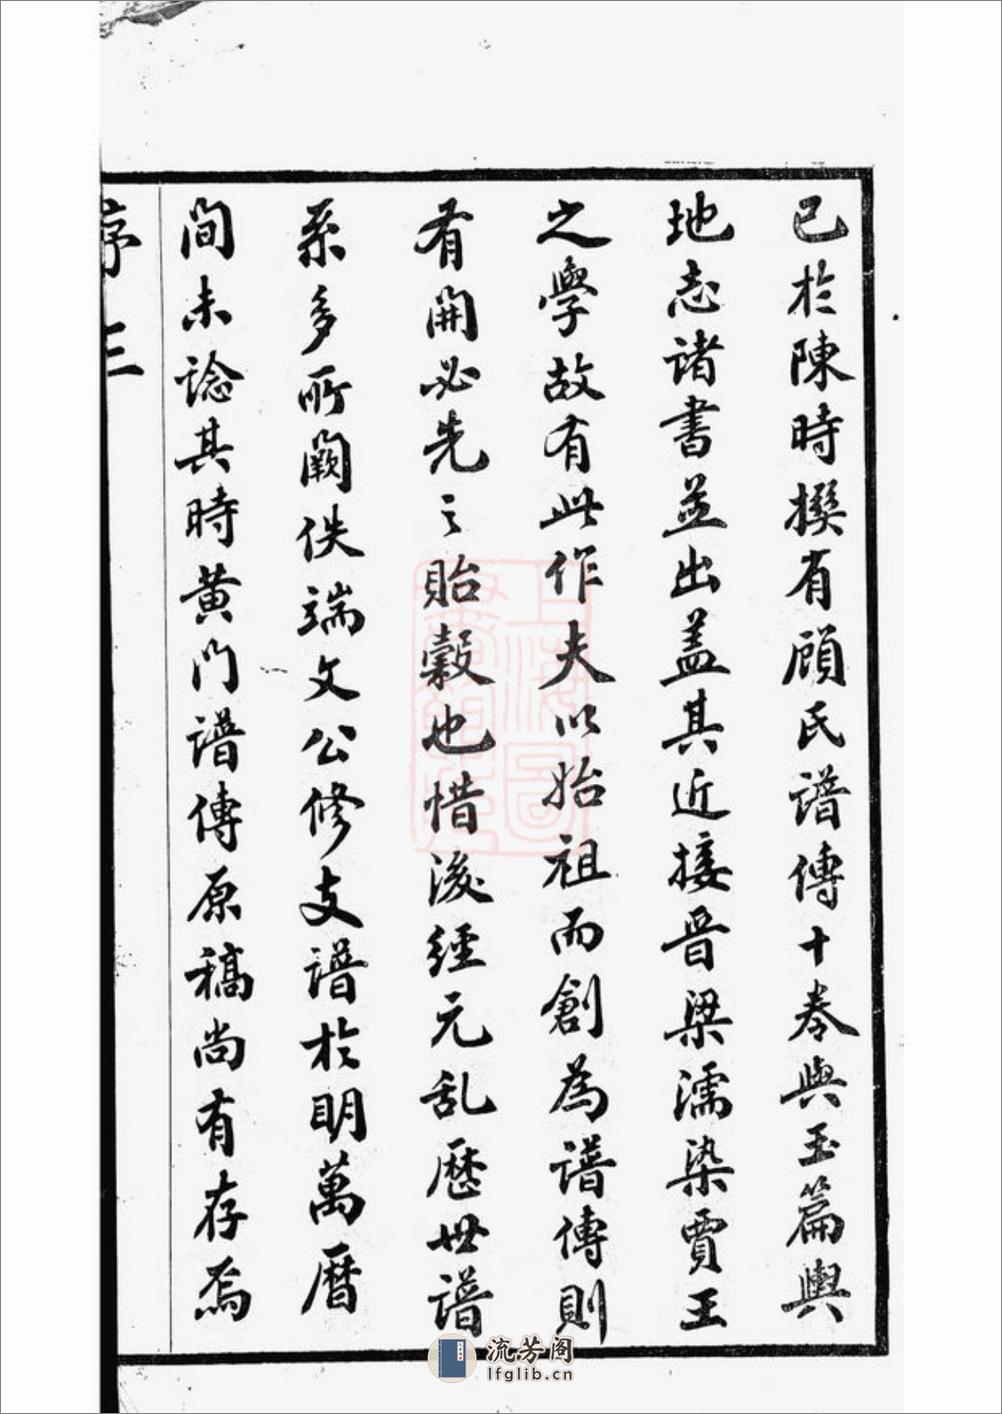 已於陳時撰有顧氏譜傳十卷與玉篇輿
地志諸書並出盖其近接晉梁濡染賈王
之學故有此作夫以始祖而創為譜傳則
有開必先之貽穀也惜後經元乱歷世譜
系多所闕佚端文公修支譜於明萬曆
間未諗其時黄門譜傳原稿尚有存焉
序 三
上海圖
流芳阁
lfglib.cn